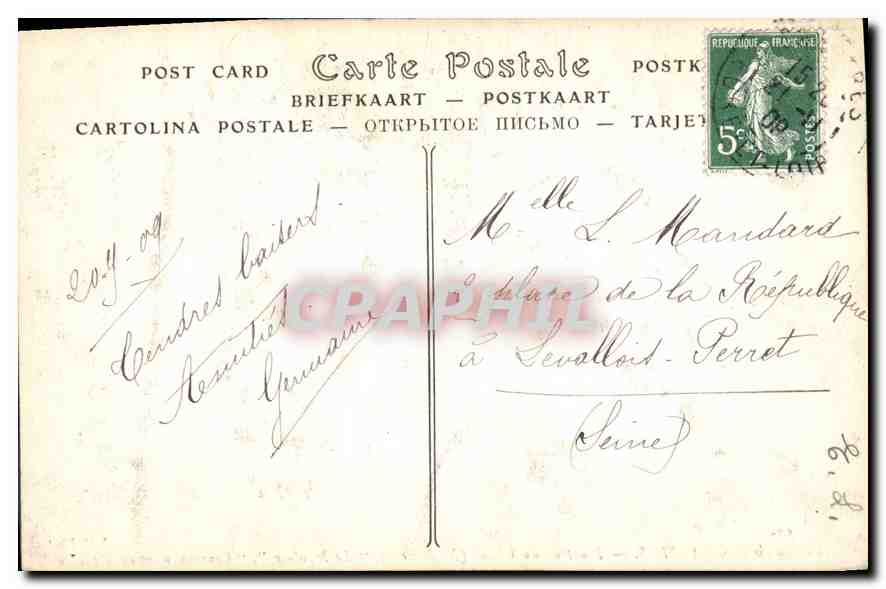 POST CARD Carte Postale POSTK
BRIEFKAART — POSTKAART
CARTOLINA POSTALE — ОТКРЫТОЕ ПИСЬМО — TARJET
REPUBLIQUE FRANÇAISE
5c
POSTES
20-5-09
Tendres baisers
Amitiés
Germaine
Melle L. Mandard
8 place de la République
à Levallois-Perret
(Seine)
CPAPHIL